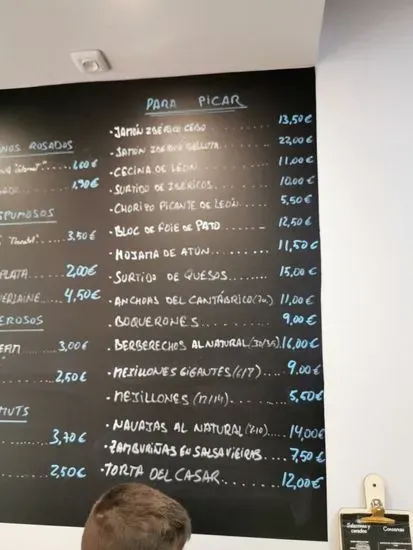 PARA PICAR
· JAMÓN IBÉRICO CEBO ........ 13,50€
· JAMÓN IBÉRICO BELLOTA ........ 22,00€
· CECINA DE LEÓN ........ 11,00€
· SURTIDO DE IBÉRICOS ........ 10,00€
· CHORIZO PICANTE DE LEÓN ........ 5,50€
· BLOC DE FOIE DE PATO ........ 12,50€
· MOJAMA DE ATÚN ........ 11,50€
· SURTIDO DE QUESOS ........ 15,00€
· ANCHOAS DEL CANTÁBRICO ........ 11,00€
· BOQUERONES ........ 9,00€
· BERBERECHOS AL NATURAL (30/35) 16,00€
· MEJILLONES GIGANTES (6/7) ........ 9,00€
· MEJILLONES (12/14) ........ 5,50€
· NAVAJAS AL NATURAL ........ 14,00€
· ZAMBURIÑAS EN SALSA VIEIRAS ........ 7,50€
· TORTA DEL CASAR ........ 12,00€
NOS ROSADOS
1,60€
1,90€
SPUMOSOS
3,50€
PLATA ........ 2,00€
4,50€
EROSOS
3,00€
2,50€
MUTS
3,70€
2,50€
Salazones y
curados
Conservas